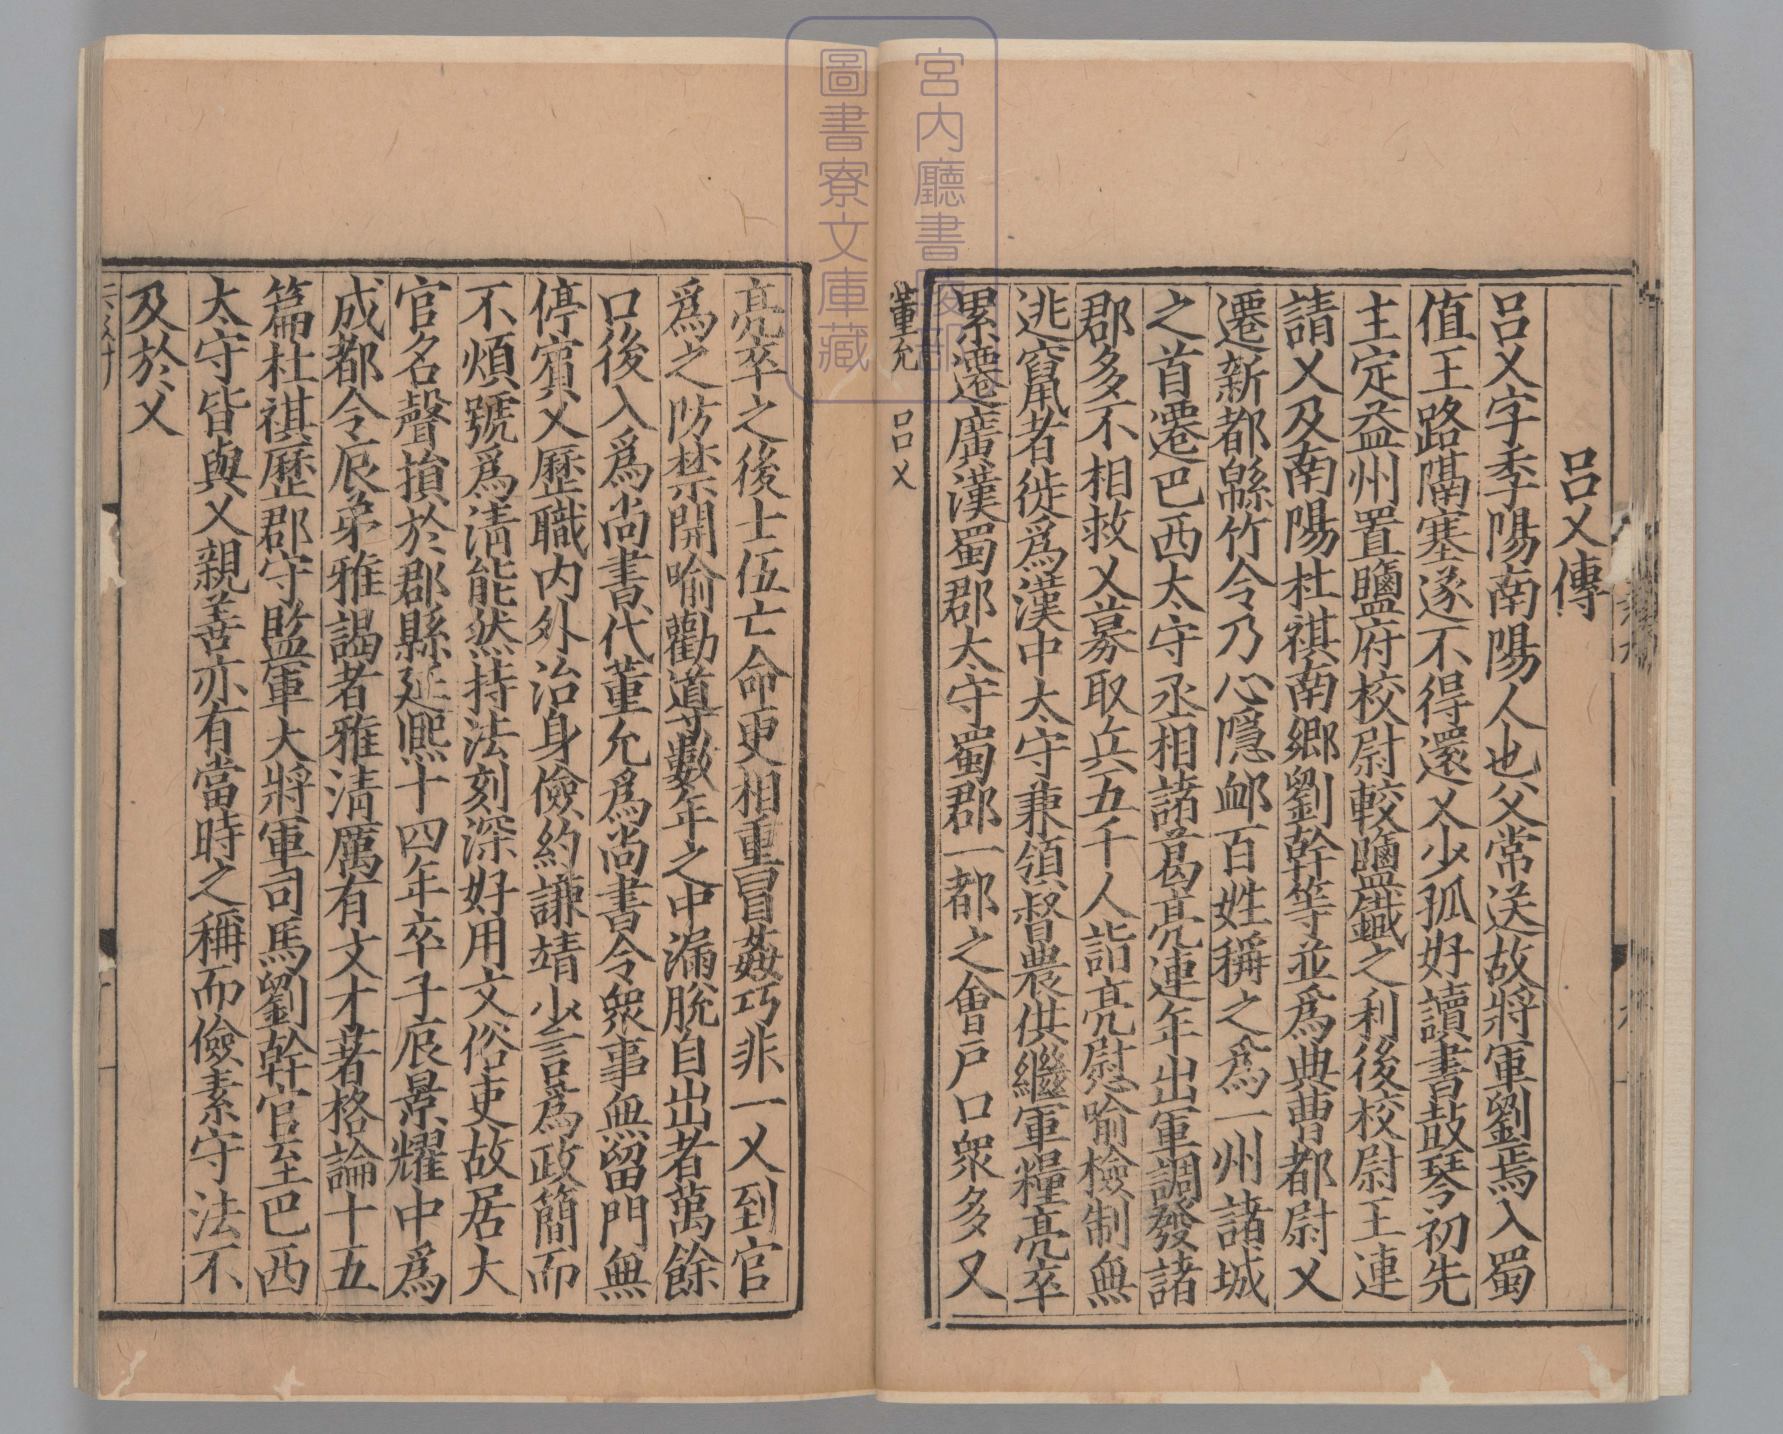 呂乂傳
呂乂字季陽南陽人也父常送故將軍劉焉入蜀
值王路隔塞遂不得還乂少孤好讀書鼓琴初先
主定益州置鹽府校尉較鹽鐵之利後校尉王連
請乂及南陽杜祺南鄉劉幹等並爲典曹都尉乂
遷新都緜竹令乃心隱卹百姓稱之爲一州諸城
之首遷巴西太守丞相諸葛亮連年出軍調發諸
郡多不相救乂募取兵五千人詣亮慰喻檢制無
逃竄者徙爲漢中太守兼領督農供繼軍糧亮卒
累遷廣漢蜀郡太守蜀郡一都之會戶口衆多又
董允 呂乂
亮卒之後士伍亡命更相重冒姦巧非一乂到官
爲之防禁開喻勸導數年之中漏脫自出者萬餘
口後入爲尚書代董允爲尚書令衆事無留門無
停賓乂歷職內外治身儉約謙靖少言爲政簡而
不煩號爲清能然持法刻深好用文俗吏故居大
官名聲損於郡縣延熙十四年卒子辰景耀中爲
成都令辰弟雅謁者雅清厲有文才著格論十五
篇杜祺歷郡守監軍大將軍司馬劉幹官至巴西
太守皆與乂親善亦有當時之稱而儉素守法不
及於乂
宮内廳書陵部
圖書寮文庫藏